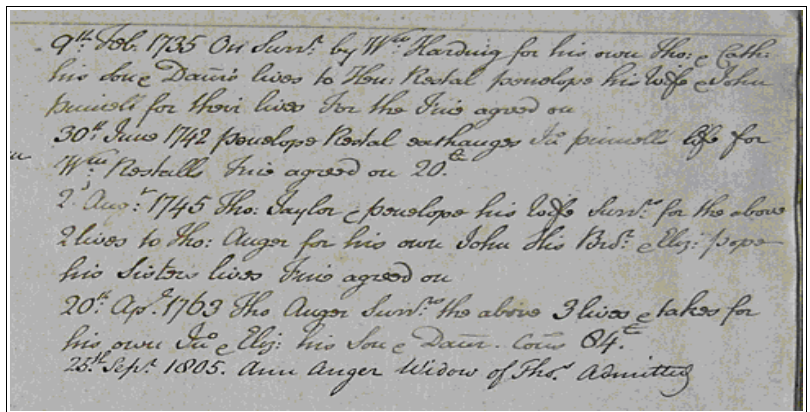 9th. Feb. 1735 On Surrr. by Wm. Harding for his own Tho: & Cath:
his Son & Daurs lives to Hen: Restal penelope his Wife & John
pinnell for their lives for the Fine agreed on
30th. June 1742 penelope Restal exchanges Jno. pinnells life for
Wm. Restalls Fine agreed on 20£.
2d. Augt. 1745 Tho: Taylor & penelope his Wife Surrr. for the above
2 lives to Tho: Auger for his own John His Bror. & Eliz: pope
his Sisters lives Fine agreed on
20th. Apl. 1763 Tho Auger Surrrs. the above 3 lives & takes for
his own Jno. & Eliz: his Son & Daur. Cons 84£.
25th. Sept. 1805. Ann Auger Widow of Thos. Admitted